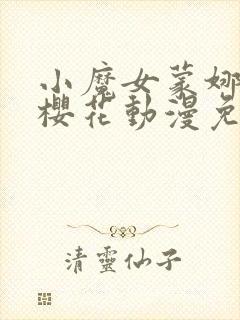 小魔女蒙娜
櫻花動漫免
清靈仙子